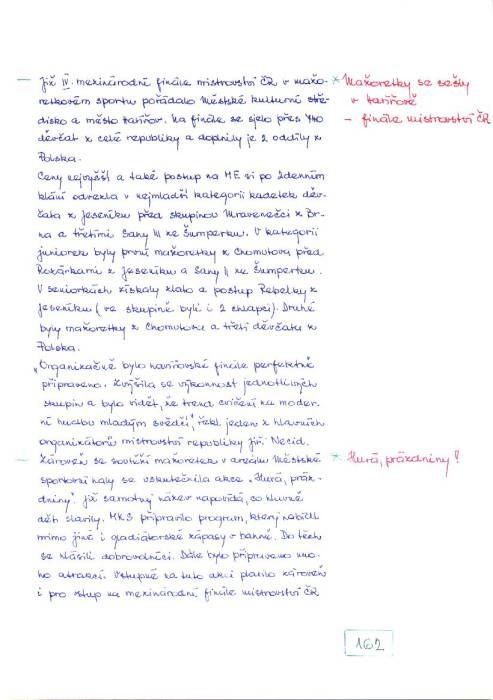 Již IV. mezinárodní finále mistrovství ČR v mažo-
retkovém sportu pořádalo Městské kulturní stře-
disko a město Havířov. Na finále se sjelo přes 440
děvčat z celé republiky a doplnily je 2 oddíly z
Polska.
Ceny nejvyšší a také postup na ME si po 2denním
klání odvezla v nejmladší kategorii kadetek děv-
čata z Jeseníku před skupinou Mravenečci z Br-
na a třetími Sany III ze Šumperku. V kategorii
juniorek byly první mažoretky z Chomutova před
Rozárkami z Jeseníku a Sany II ze Šumperku.
V seniorkách získaly zlato a postup Rebelky z
Jeseníku (ve skupině byli i 2 chlapci). Druhé
byly mažoretky z Chomutova a třetí děvčata z
Polska.
„Organizačně bylo havířovské finále perfektně
připraveno. Zvýšila se výkonnost jednotlivých
skupin a bylo vidět, že trend cvičení na moder-
ní hudbu mladým svědčí," řekl jeden z hlavních
organizátorů mistrovství republiky Jiří Necid.
Zároveň se soutěží mažoretek v areálu Městské
sportovní haly se uskutečnila akce „Hurá, práz-
dniny". Již samotný název napovídá, co hlavně
děti slavily. MKS připravilo program, který nabídl
mimo jiné i gladiátorské zápasy v bahně. Do těch
se hlásili dobrovolníci. Dále bylo připraveno mno-
ho atrakcí. Vstupné na tuto akci platilo zároveň
i pro vstup na mezinárodní finále mistrovství ČR
* Mažoretky se sešly
v Havířově
– finále mistrovství ČR
* Hurá, prázdniny!
162